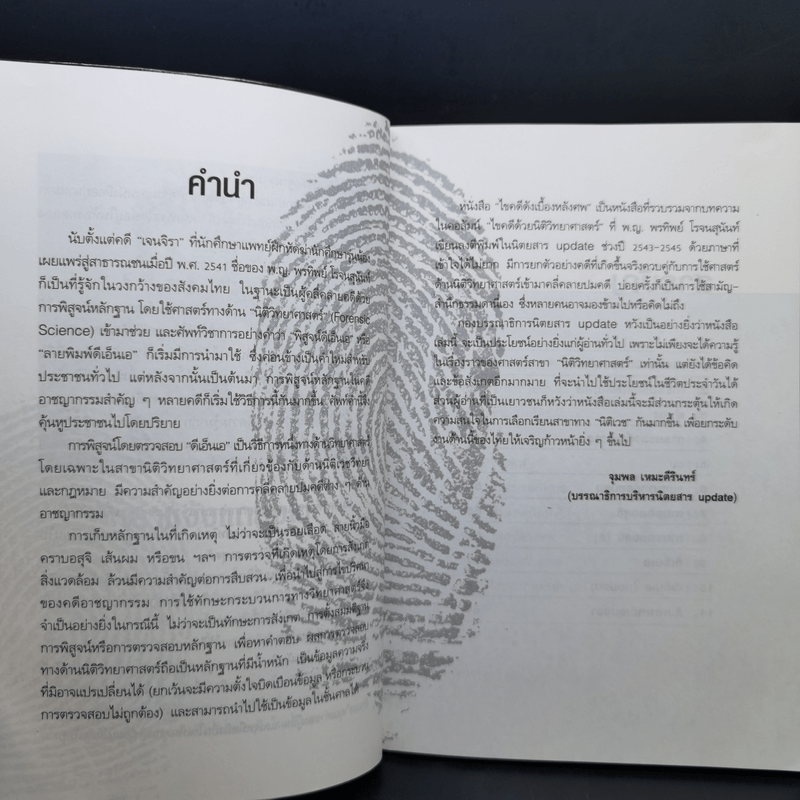 คำนำ
นับตั้งแต่คดี "เจนจิรา" ที่นักศึกษาแพทย์ฝึกหัดฆ่านักศึกษารุ่นน้อง
เผยแพร่สู่สาธารณชนเมื่อปี พ.ศ. 2541 ชื่อของ พ.ญ. พรทิพย์ โรจนสุนันท์
ก็เป็นที่รู้จักในวงกว้างของสังคมไทย ในฐานะเป็นผู้คลี่คลายคดีด้วย
การพิสูจน์หลักฐาน โดยใช้ศาสตร์ทางด้าน "นิติวิทยาศาสตร์" (Forensic
Science) เข้ามาช่วย และศัพท์วิชาการอย่างคำว่า "พิสูจน์ดีเอ็นเอ" หรือ
"ลายพิมพ์ดีเอ็นเอ" ก็เริ่มมีการนำมาใช้ ซึ่งค่อนข้างเป็นคำใหม่สำหรับ
ประชาชนทั่วไป แต่หลังจากนั้นเป็นต้นมา การพิสูจน์หลักฐานในคดี
อาชญากรรมสำคัญ ๆ หลายคดีก็เริ่มใช้วิธีการนี้กันมากขึ้น ศัพท์คำนี้จึง
คุ้นหูประชาชนไปโดยปริยาย
การพิสูจน์โดยตรวจสอบ "ดีเอ็นเอ" เป็นวิธีการหนึ่งทางด้านวิทยาศาสตร์
โดยเฉพาะในสาขานิติวิทยาศาสตร์ที่เกี่ยวข้องกับด้านนิติเวชวิทยา
และกฎหมาย มีความสำคัญอย่างยิ่งต่อการคลี่คลายปมคดีต่าง ๆ ด้าน
อาชญากรรม
การเก็บหลักฐานในที่เกิดเหตุ ไม่ว่าจะเป็นรอยเลือด ลายนิ้วมือ
คราบอสุจิ เส้นผม หรือขน ฯลฯ การตรวจที่เกิดเหตุโดยการสังเกต
สิ่งแวดล้อม ล้วนมีความสำคัญต่อการสืบสวน เพื่อนำไปสู่การไขปริศนา
ของคดีอาชญากรรม การใช้ทักษะกระบวนการทางวิทยาศาสตร์จึง
จำเป็นอย่างยิ่งในกรณีนี้ ไม่ว่าจะเป็นทักษะการสังเกต การตั้งสมมติฐาน
การพิสูจน์หรือการตรวจสอบหลักฐาน เพื่อหาคำตอบ ผลการตรวจสอบ
ทางด้านนิติวิทยาศาสตร์ถือเป็นหลักฐานที่มีน้ำหนัก เป็นข้อมูลความจริง
ที่มิอาจแปรเปลี่ยนได้ (ยกเว้นจะมีความตั้งใจบิดเบือนข้อมูล หรือกระบวน
การตรวจสอบไม่ถูกต้อง) และสามารถนำไปใช้เป็นข้อมูลในชั้นศาลได้
หนังสือ "ไขคดีดังเบื้องหลังศพ" เป็นหนังสือที่รวบรวมจากบทความ
ในคอลัมน์ "ไขคดีด้วยนิติวิทยาศาสตร์" ที่ พ.ญ. พรทิพย์ โรจนสุนันท์
เขียนลงตีพิมพ์ในนิตยสาร update ช่วงปี 2543-2545 ด้วยภาษาที่
เข้าใจได้ไม่ยาก มีการยกตัวอย่างคดีที่เกิดขึ้นจริงควบคู่กับการใช้ศาสตร์
ด้านนิติวิทยาศาสตร์เข้ามาคลี่คลายปมคดี บ่อยครั้งก็เป็นการใช้สามัญ-
สำนึกธรรมดานี่เอง ซึ่งหลายคนอาจมองข้ามไปหรือคิดไม่ถึง
กองบรรณาธิการนิตยสาร update หวังเป็นอย่างยิ่งว่าหนังสือ
เล่มนี้ จะเป็นประโยชน์อย่างยิ่งแก่ผู้อ่านทั่วไป เพราะไม่เพียงจะได้ความรู้
ในเรื่องราวของศาสตร์สาขา "นิติวิทยาศาสตร์" เท่านั้น แต่ยังได้ข้อคิด
และข้อสังเกตอีกมากมาย ที่จะนำไปใช้ประโยชน์ในชีวิตประจำวันได้
ส่วนผู้อ่านที่เป็นเยาวชนก็หวังว่าหนังสือเล่มนี้จะมีส่วนกระตุ้นให้เกิด
ความสนใจในการเลือกเรียนสาขาทาง "นิติเวช" กันมากขึ้น เพื่อยกระดับ
งานด้านนี้ของไทยให้เจริญก้าวหน้ายิ่ง ๆ ขึ้นไป
จุมพล เหมะคีรินทร์
(บรรณาธิการบริหารนิตยสาร update)